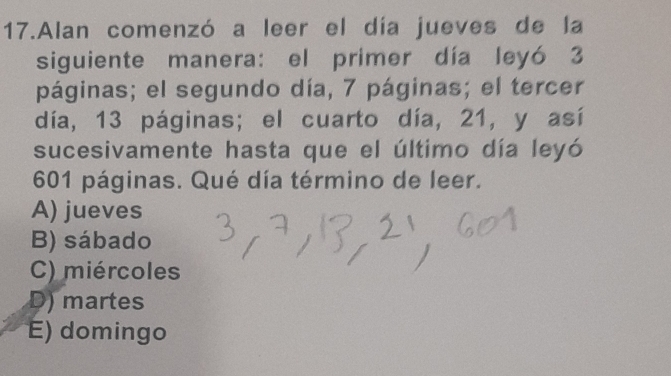 17.Alan comenzó a leer el día jueves de la
siguiente manera: el primer día leyó 3
páginas; el segundo día, 7 páginas; el tercer
día, 13 páginas; el cuarto día, 21, y así
sucesivamente hasta que el último día leyó
601 páginas. Qué día término de leer.
A) jueves
B) sábado
C) miércoles
D) martes
E) domingo
3, 7, 13, 21, 601